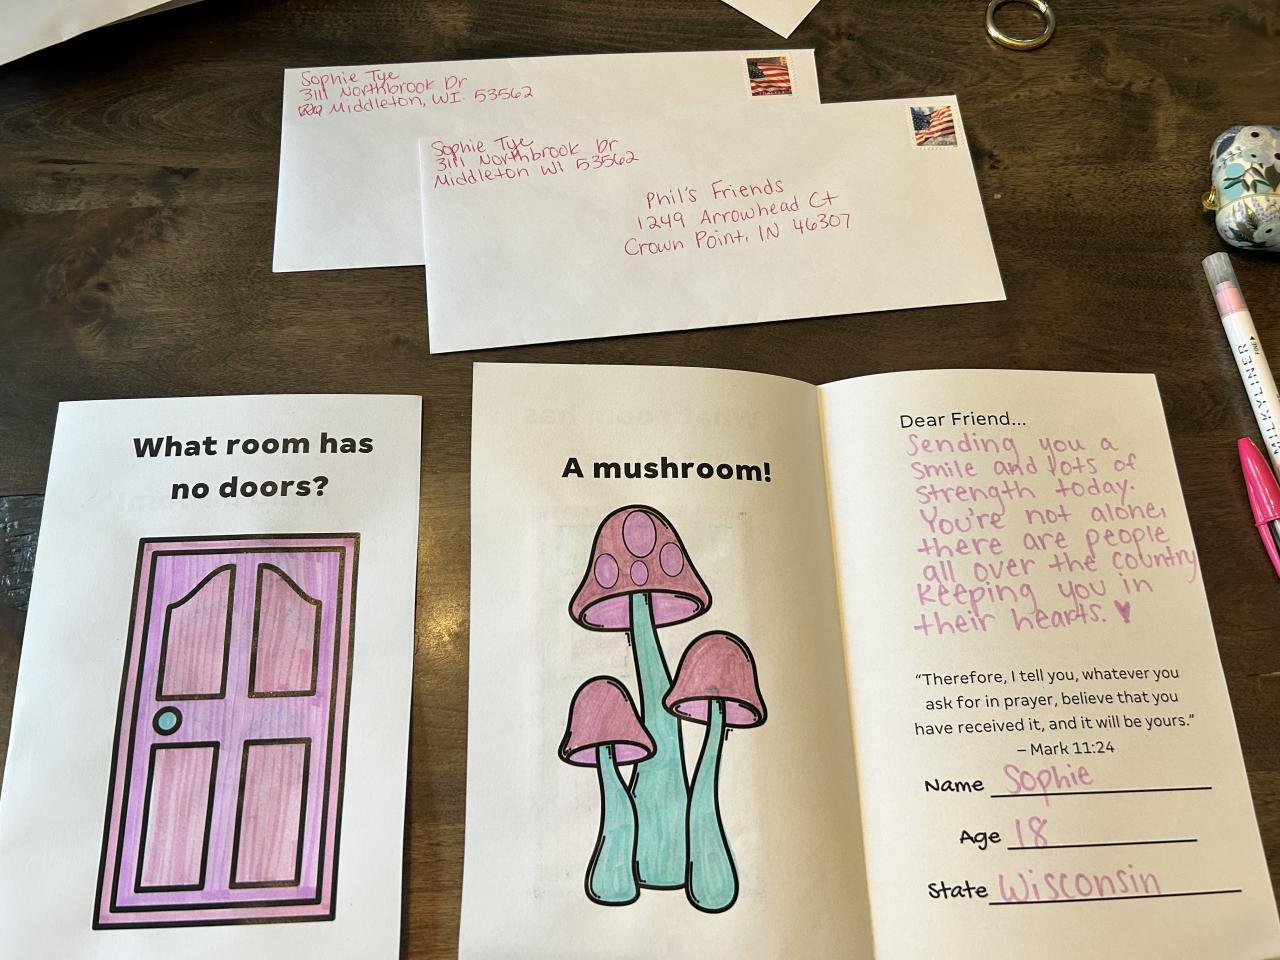 Sophie Tye
3111 Northbrook Dr
Middleton, WI 53562
Sophie Tye
3111 Northbrook Dr
Middleton WI 53562
Phil's Friends
1249 Arrowhead Ct
Crown Point, IN 46307
What room has
no doors?
A mushroom!
Dear Friend...
Sending you a
smile and lots of
strength today.
You're not alone,
there are people
all over the country
keeping you in
their hearts.
"Therefore, I tell you, whatever you
ask for in prayer, believe that you
have received it, and it will be yours."
– Mark 11:24
Name Sophie
Age 18
State Wisconsin
MILKYLINER